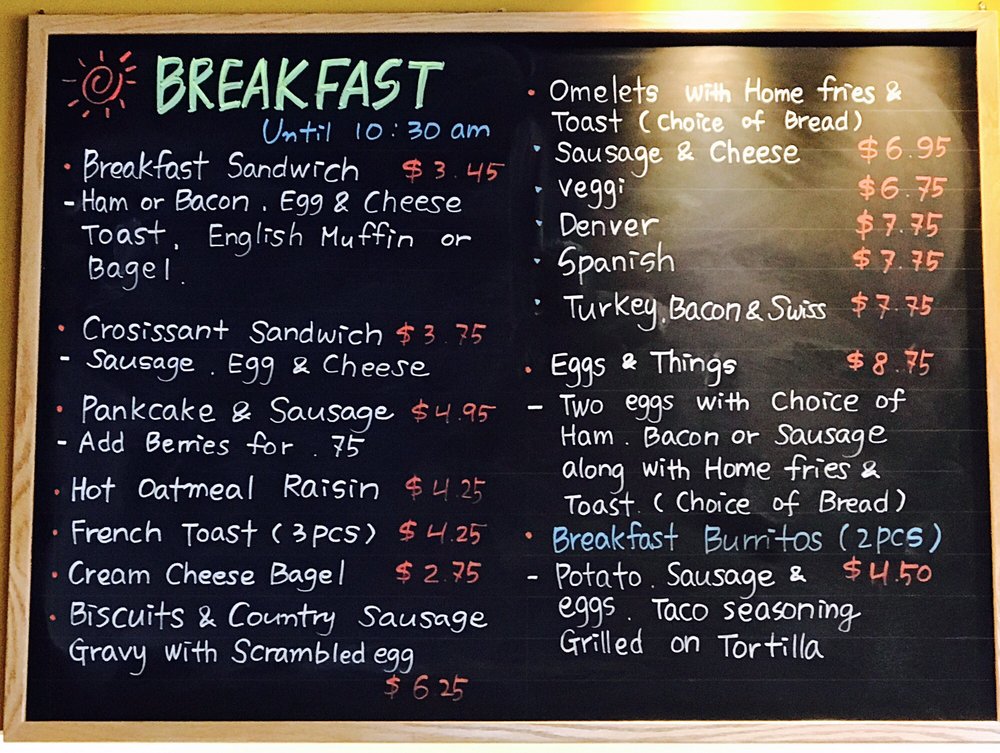 BREAKFAST
Until 10:30 am
• Breakfast Sandwich $3.45
- Ham or Bacon. Egg & Cheese
Toast, English Muffin or
Bagel.
• Crosissant Sandwich $3.75
- Sausage. Egg & Cheese
• Pankcake & Sausage $4.95
- Add Berries for .75
• Hot Oatmeal Raisin $4.25
• French Toast (3pcs) $4.25
• Cream Cheese Bagel $2.75
• Biscuits & Country Sausage
Gravy with Scrambled egg
$6.25
• Omelets with Home fries &
Toast (Choice of Bread)
• Sausage & Cheese $6.95
• veggi $6.75
• Denver $7.75
• Spanish $7.75
• Turkey, Bacon & Swiss $7.75
• Eggs & Things $8.75
- Two eggs with Choice of
Ham. Bacon or Sausage
along with Home fries &
Toast. (Choice of Bread)
• Breakfast Burritos (2pcs)
- Potato. Sausage & $4.50
eggs. Taco seasoning
Grilled on Tortilla